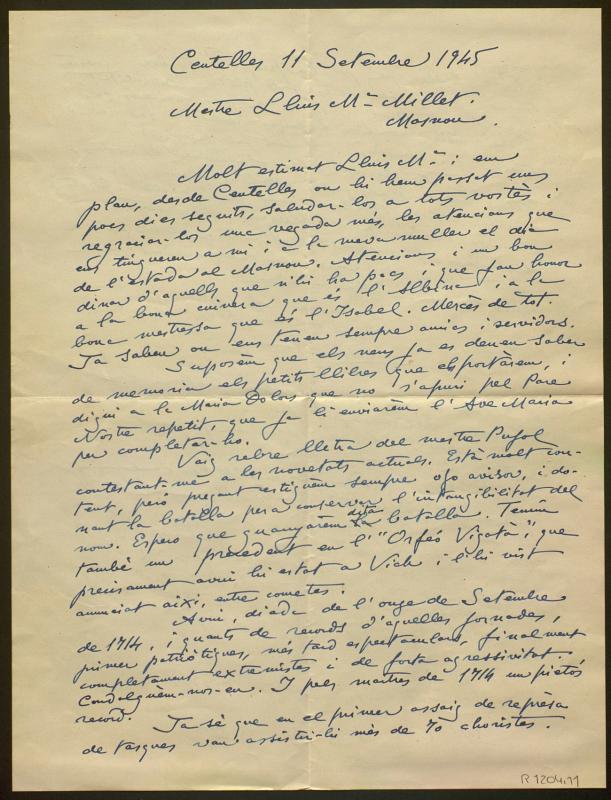 Centelles 11 Setembre 1945
Mestre Lluis Mª Millet.
Masnou.
Molt estimat Lluis Mª: em
plau, desde Centelles on hi hem passat uns
pocs dies seguits, saludar-los a tots vostès i
regraciar-los una vegada més, les atencions que
ens tingueren a mi i a la meva muller el dia
de l'estada al Masnou. Atencions i un bon
dinar d'aquells que n'hi ha pocs, i que fan honor
a la bona cuinera que és l'Albina i a la
bona mestressa que és l'Isabel. Mercès de tot.
Ja saben on ens tenen sempre amics i servidors.
Suposèm que els nens ja es deuen saber
de memoria els petits llibres que els portàrem, i
digui a la Maria Dolors que no s'apuri pel Pare
Nostre repetit, que ja li enviarèm l'Ave Maria
per completar-ho.
Vaig rebre lletra del mestre Pujol
contestant-me a les novetats actuals. Està molt con-
tent, peró pregant estiguèm sempre ojo avisor, i do-
nant la batalla pera conservar l'intangibilitat del
nom. Espero que guanyarèm dita batalla. Tenim
també un precedent en l'"Orfeó Vigatà", que
precisament avui he estat a Vich i l'hi vist
anunciat aixi, entre cometes.
Avui, diada de l'onze de Setembre
de 1714, i quants de records d'aquelles jornades,
primer patriòtiques, més tard espectaculars, finalment
completament extremistes i de forta agressivitat.
Condolguèm-nos-en. I pels martres de 1714 un pietós
record.
Ja sé que en el primer assaig de represa
de tasques van assistir-hi mès de 70 choristes.
R 1204.11